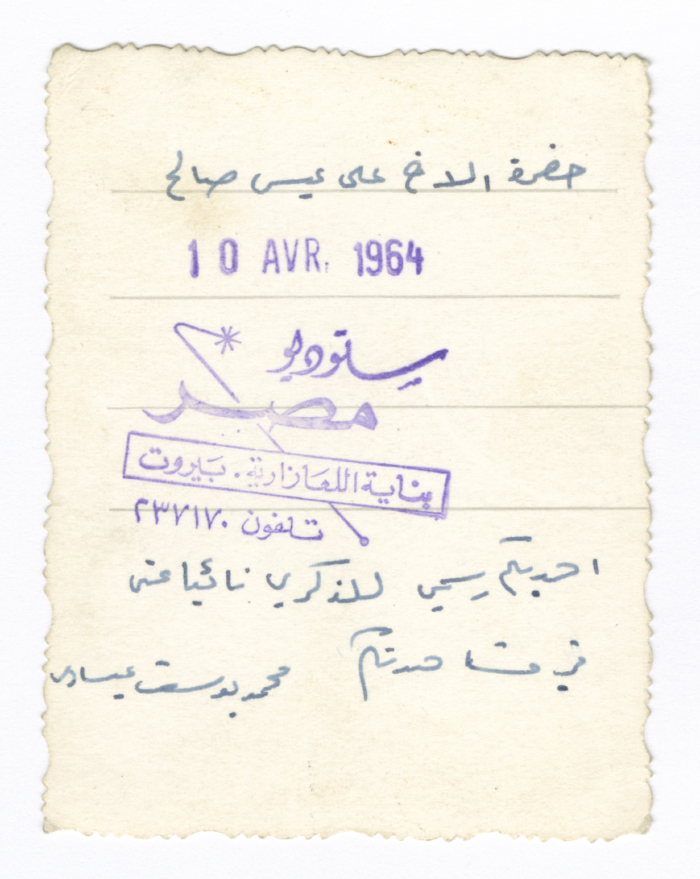 حضرة الاخ علي عيسى صالح
10 AVR. 1964
ستوديو
مصر
بناية اللعازارية. بيروت
تلفون ٢٣٧١٧٠
اهديكم رسمي للذكرى نائبا عني
في مشاهدتكم
محمد يوسف